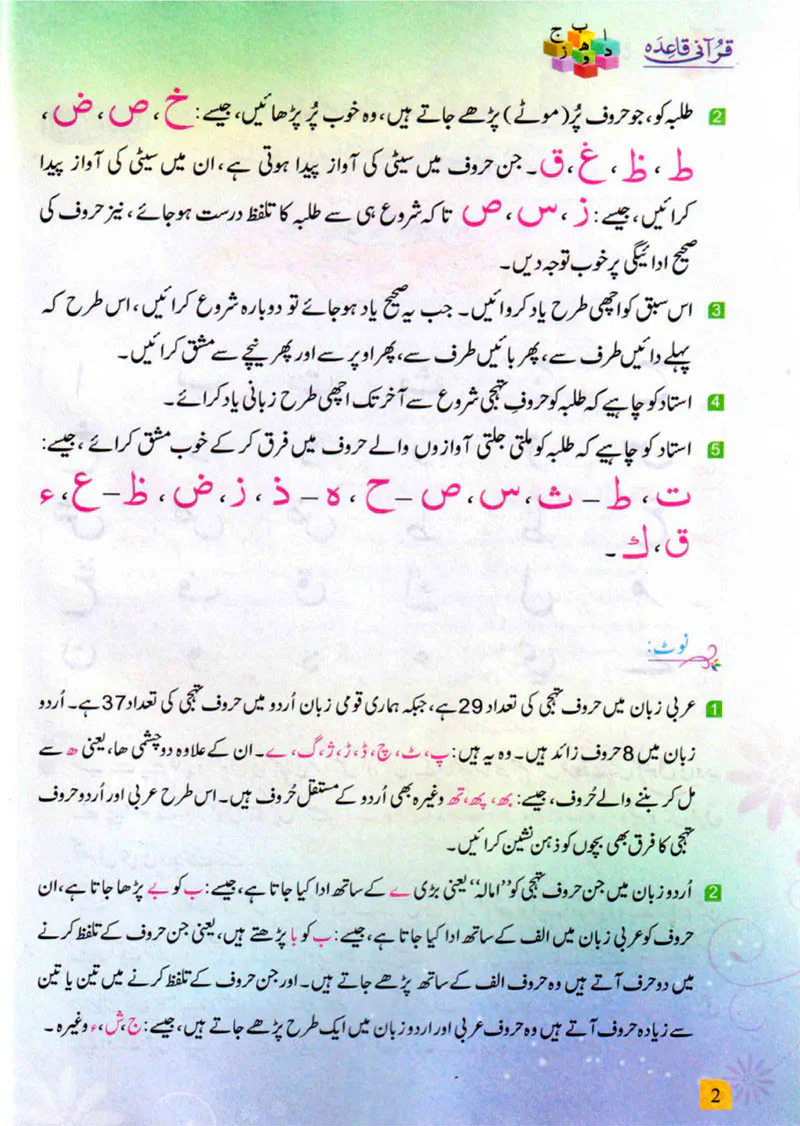 قرآنی قاعدہ
ا ب ج
د ھ ز
و
2 طلبہ کو، جو حروف پُر (موٹے) پڑھے جاتے ہیں، وہ خوب پُر پڑھائیں، جیسے: خ، ص، ض،
ط، ظ، غ، ق۔ جن حروف میں سیٹی کی آواز پیدا ہوتی ہے، ان میں سیٹی کی آواز پیدا
کرائیں، جیسے: ز، س، ص تاکہ شروع ہی سے طلبہ کا تلفظ درست ہوجائے، نیز حروف کی
صحیح ادائیگی پر خوب توجہ دیں۔
3 اس سبق کو اچھی طرح یاد کروائیں۔ جب یہ صحیح یاد ہوجائے تو دوبارہ شروع کرائیں، اس طرح کہ
پہلے دائیں طرف سے، پھر بائیں طرف سے، پھر اوپر سے اور پھر نیچے سے مشق کرائیں۔
4 استاد کو چاہیے کہ طلبہ کو حروفِ تہجی شروع سے آخر تک اچھی طرح زبانی یاد کرائے۔
5 استاد کو چاہیے کہ طلبہ کو ملتی جلتی آوازوں والے حروف میں فرق کر کے خوب مشق کرائے، جیسے:
ت، ط – ث، س، ص – ح، ہ – ذ، ز، ض، ظ – ع، ء
ق، ك۔
نوٹ:
1 عربی زبان میں حروف تہجی کی تعداد 29 ہے، جبکہ ہماری قومی زبان اُردو میں حروف تہجی کی تعداد 37 ہے۔ اُردو
زبان میں 8 حروف زائد ہیں۔ وہ یہ ہیں: پ، ٹ، چ، ڈ، ڑ، ژ، گ، ے۔ ان کے علاوہ دو چشمی ھا، یعنی ھ سے
مل کر بننے والے حُروف، جیسے: بھ، پھ، تھ وغیرہ بھی اُردو کے مستقل حُروف ہیں۔ اس طرح عربی اور اُردو حروف
تہجی کا فرق بھی بچوں کو ذہن نشین کرائیں۔
2 اُردو زبان میں جن حروف تہجی کو ”امالہ“ یعنی بڑی ے کے ساتھ ادا کیا جاتا ہے، جیسے: ب کو بے پڑھا جاتا ہے، ان
حروف کو عربی زبان میں الف کے ساتھ ادا کیا جاتا ہے، جیسے: ب کو با پڑھتے ہیں، یعنی جن حروف کے تلفظ کرنے
میں دو حرف آتے ہیں وہ حروف الف کے ساتھ پڑھے جاتے ہیں۔ اور جن حروف کے تلفظ کرنے میں تین یا تین
سے زیادہ حروف آتے ہیں وہ حروف عربی اور اردو زبان میں ایک طرح پڑھے جاتے ہیں، جیسے: ج، ش، ء وغیرہ۔
2